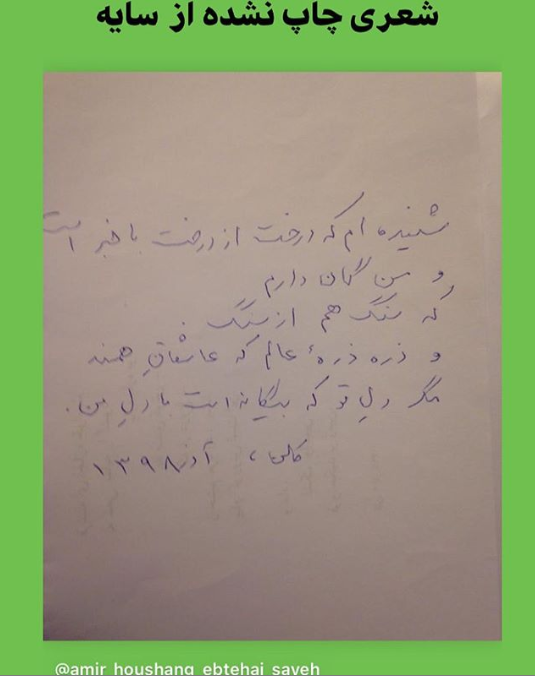 شعری چاپ نشده از سایه
شنیده ام که درخت از درخت باخبر است
و من گمان دارم
که سنگ هم از سنگ .
و ذره ذرهٔ عالم که عاشقانِ همند
مگر دلِ تو که بیگانه است با دلِ من .
کلن ، آذر ۱۳۹۸
@amir_houshang_ebtehaj_sayeh